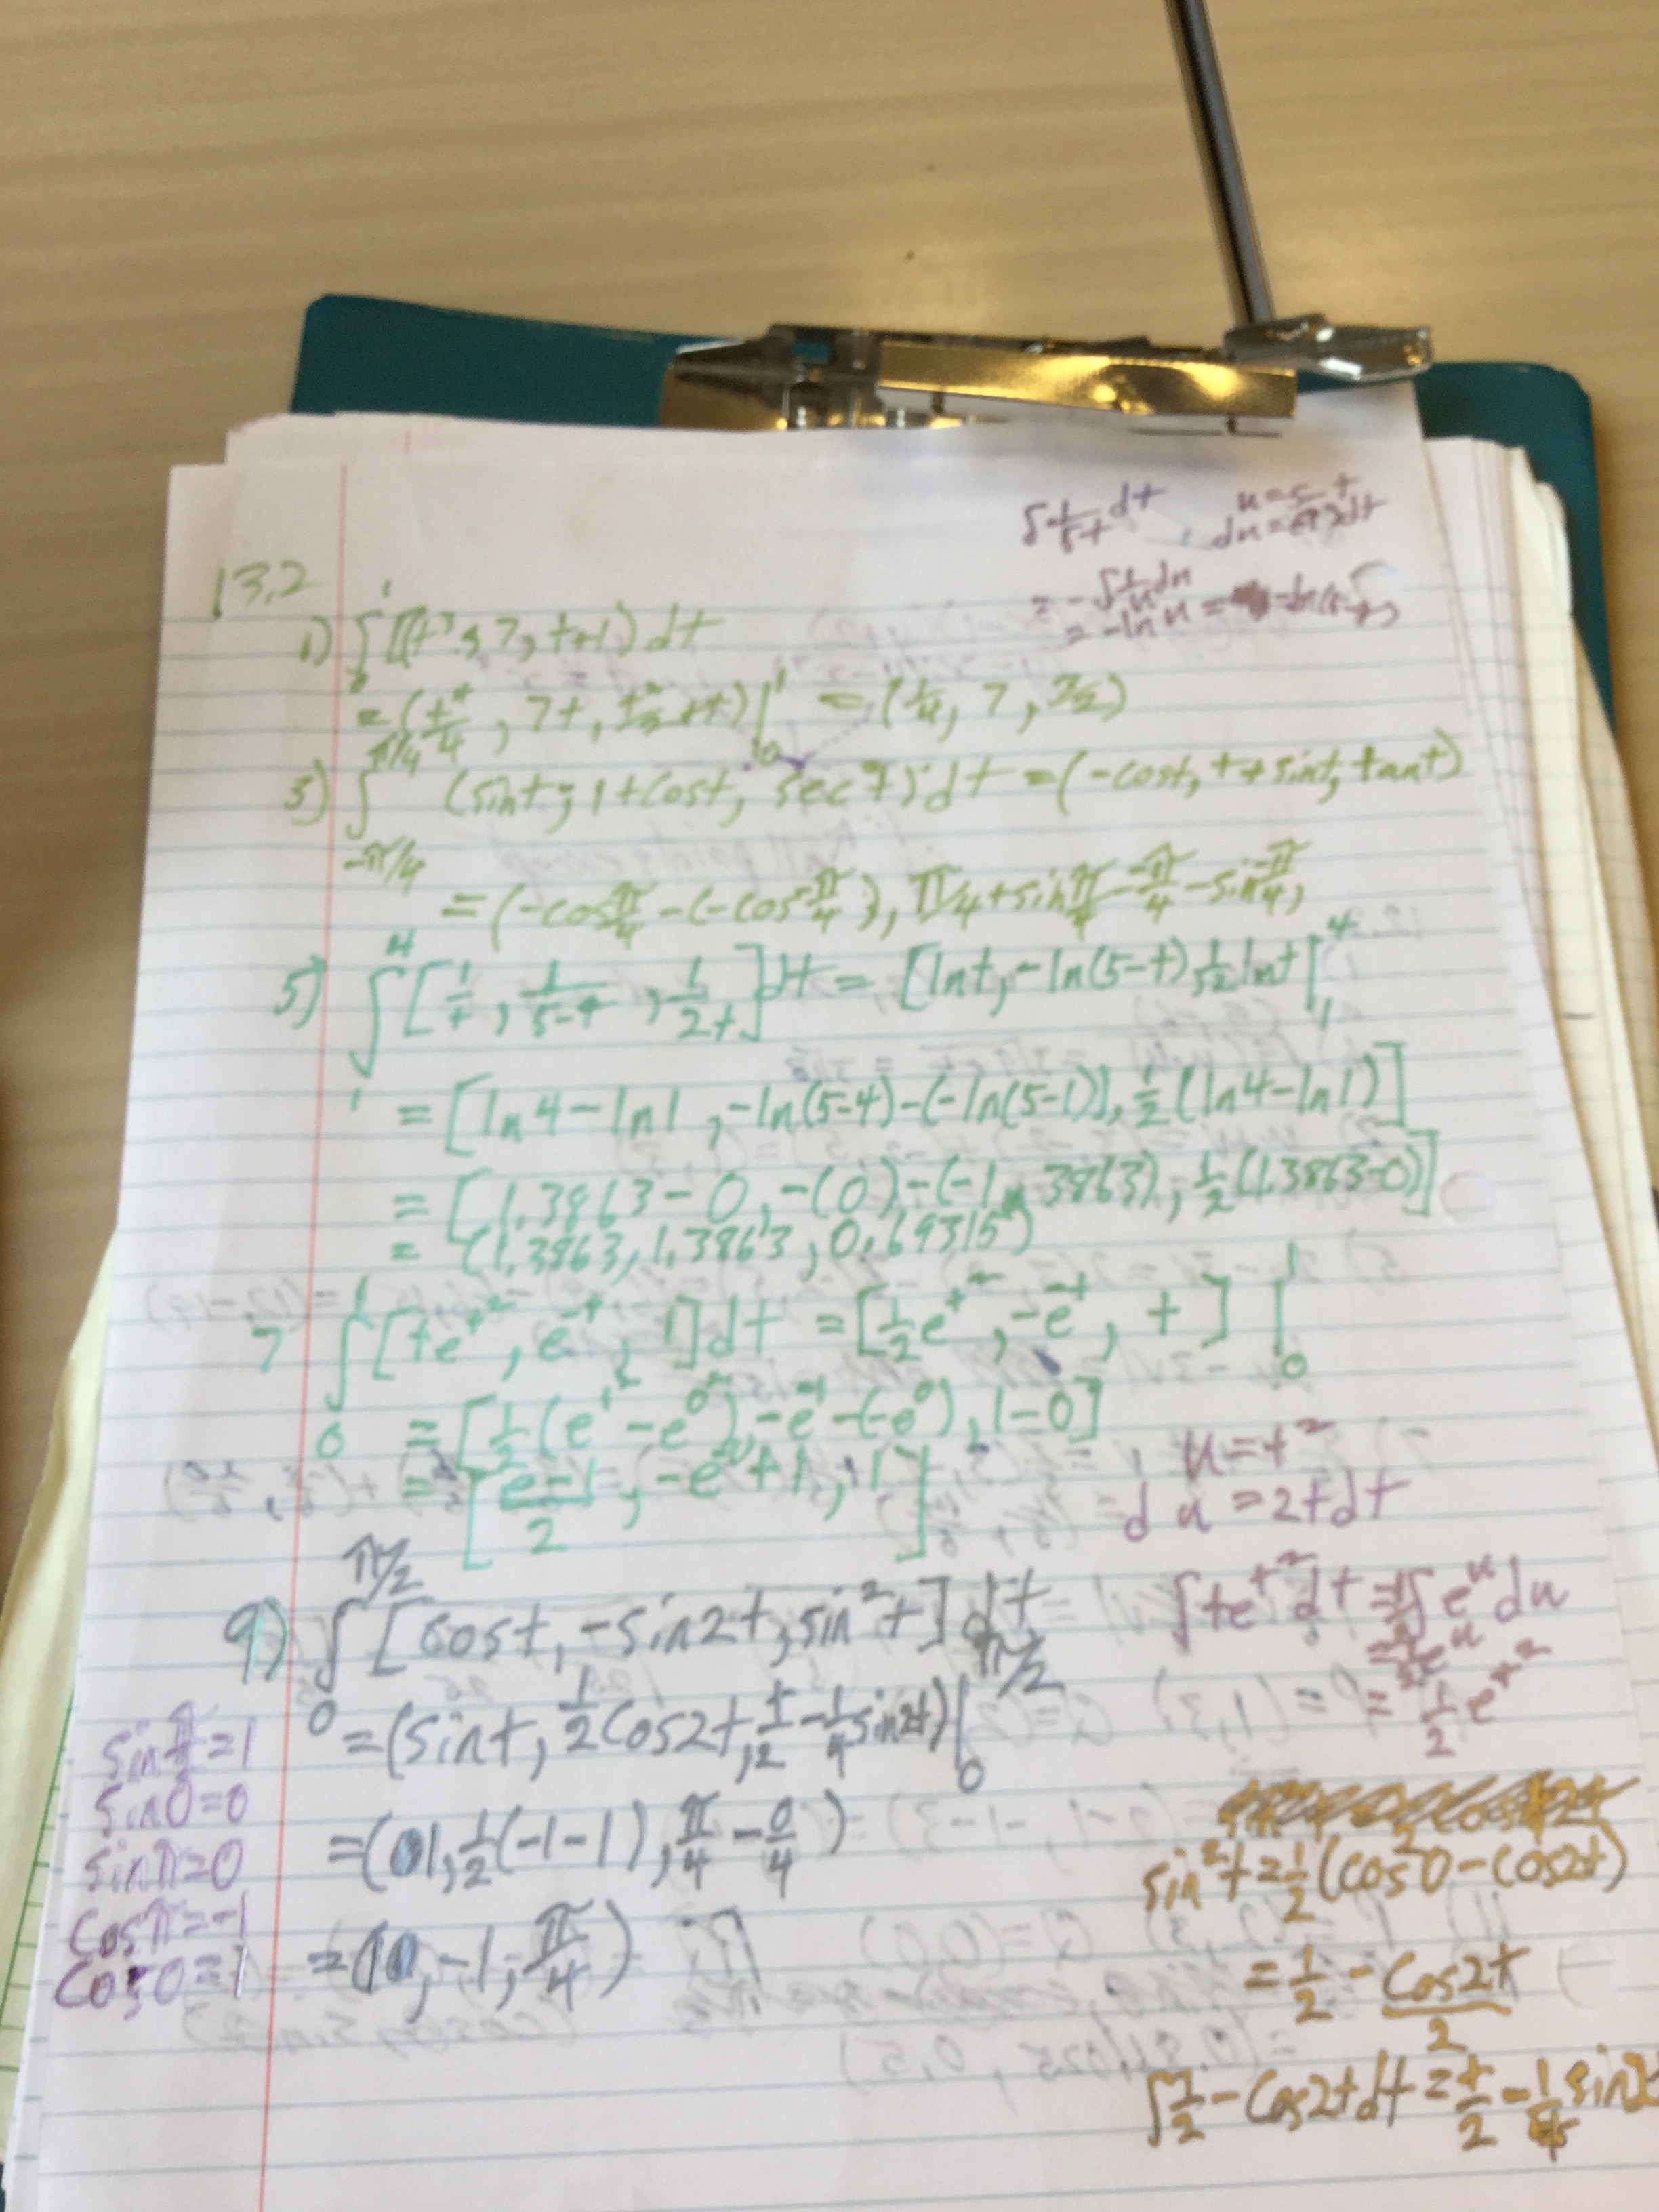 13.2
∫ 1/(5-t) dt , u = 5-t
du = (-1)dt
= -∫ 1/u du
= -ln u = -ln(5-t)
1) ∫₀¹ (t³, 7, t+1) dt
= (t⁴/4, 7t, t²/2+t)|₀¹ = (1/4, 7, 3/2)
3) ∫_{-π/4}^{π/4} (sint, 1+cost, sec²t) dt = (-cost, t+sint, tant)
= (-cos π/4 - (-cos π/4), π/4 + sin π/4 - -π/4 - sin -π/4,
5) ∫₁⁴ [1/t, 1/(5-t), 1/2t] dt = [lnt, -ln(5-t) 1/2 lnt|₁⁴
= [ln4 - ln1, -ln(5-4)-(-ln(5-1)), 1/2(ln4-ln1)]
= [1.3863 - 0, -(0)-(-1.3863), 1/2(1.3863-0)]
= (1.3863, 1.3863, 0.69315)
7 ∫₀¹ [te^{t²}, e^{-t}, 1] dt = [1/2 e^{t²}, -e^{-t}, t] |₀¹
= [1/2(e^{1²} - e^{0²}), -e^{-1} - (-e⁰), 1-0]
= [(e-1)/2, -e^{-1}+1, 1]
u = t²
du = 2tdt
∫te^{t²}dt = 1/2∫e^u du
= 1/2 e^u
= 1/2 e^{t²}
9) ∫₀^{π/2} [cost, -sin2t, sin²t] dt
= (sint, 1/2 cos2t, t/2 - 1/4 sin2t)|₀^{π/2}
= (1, 1/2(-1-1), π/4 - 0/4)
= (1, -1, π/4)
sin π/2 = 1
sin0=0
sinπ=0
cosπ=-1
cos0=1
sin²t = 1/2(cos0 - cos2t)
= 1/2 - cos2t/2
∫1/2 - cos2tdt = t/2 - 1/4 sin2t